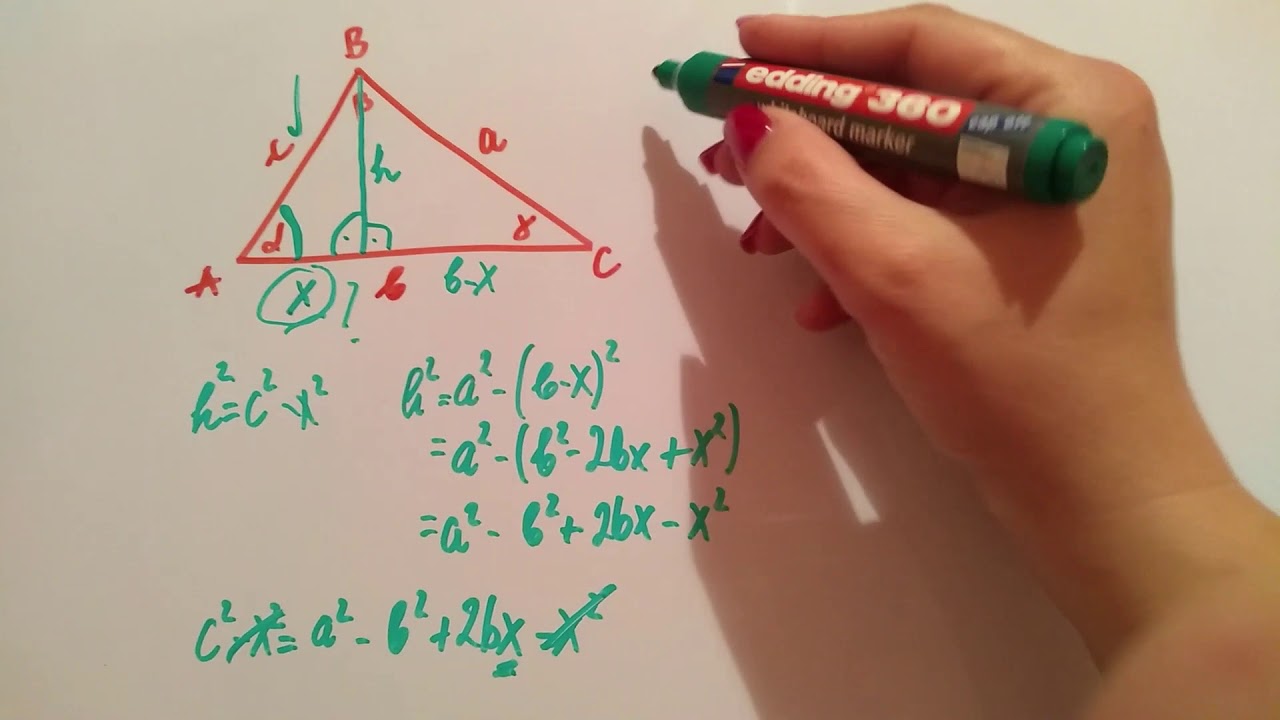 B
c
β
h
a
α
γ
A
C
x ?
b
b-x
h²=c²-x²
h²=a²-(b-x)²
=a²-(b²-2bx+x²)
=a²-b²+2bx-x²
c²-x²=a²-b²+2bx-x²
edding 360
whiteboard marker
cap off